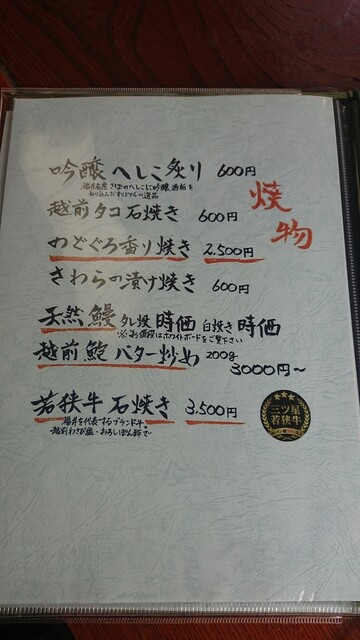 焼物
吟醸へしこ炙り 600円
福井名産 さばのへしこに吟醸酒粕を
越前タコ石焼き 600円
のどぐろ香り焼き 2.500円
さわらの漬け焼き 600円
天然鰻 タレ焼 時価 白焼き 時価
※お値段はホワイトボードをご覧下さい
越前鮑バター炒め 200g 3000円~
若狭牛石焼き 3,500円
福井を代表するブランド牛。
越前わさび塩・おろしぽん酢で
三ツ星
若狭牛